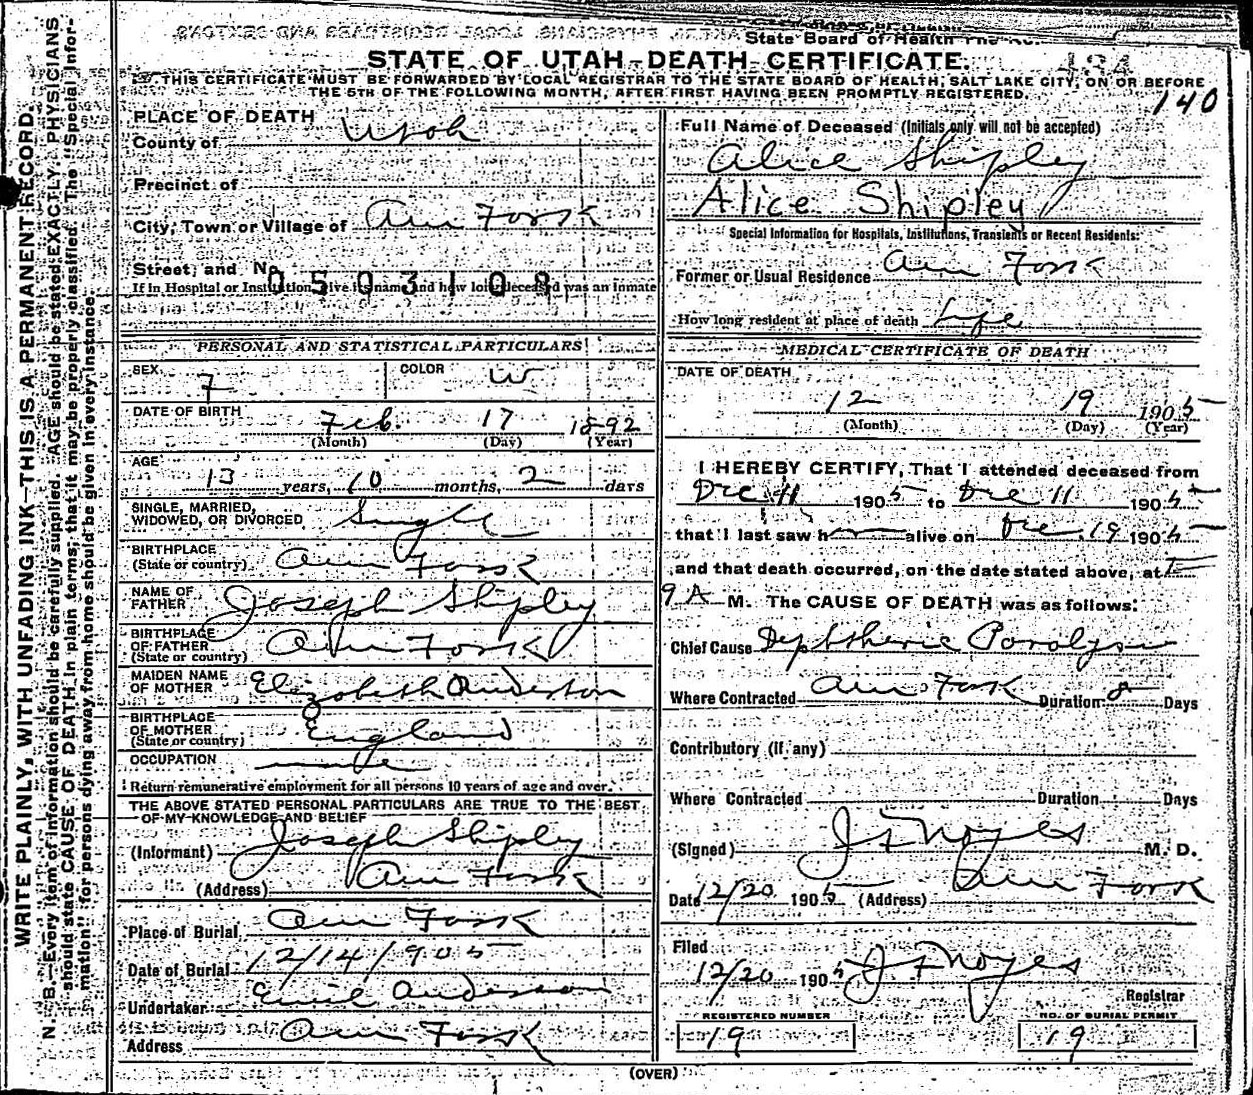 State Board of Health
STATE OF UTAH—DEATH CERTIFICATE.
THIS CERTIFICATE MUST BE FORWARDED BY LOCAL REGISTRAR TO THE STATE BOARD OF HEALTH, SALT LAKE CITY, ON OR BEFORE
THE 5TH OF THE FOLLOWING MONTH, AFTER FIRST HAVING BEEN PROMPTLY REGISTERED.
140
WRITE PLAINLY, WITH UNFADING INK—THIS IS A PERMANENT RECORD.
N. B.—Every item of information should be carefully supplied. AGE should be stated EXACTLY. PHYSICIANS
should state CAUSE OF DEATH in plain terms, that it may be properly classified. The "Special Infor-
mation" for persons dying away from home should be given in every instance.
PLACE OF DEATH
County of Utah
Precinct of
City, Town or Village of Am Fork
Street, and No.
0503108
If in Hospital or Institution, give its name and how long deceased was an inmate
PERSONAL AND STATISTICAL PARTICULARS
SEX F COLOR W
DATE OF BIRTH Feb. 17 1892
(Month) (Day) (Year)
AGE
13 years, 10 months, 2 days
SINGLE, MARRIED,
WIDOWED, OR DIVORCED Single
BIRTHPLACE
(State or country) Am Fork
NAME OF
FATHER Joseph Shipley
BIRTHPLACE
OF FATHER
(State or country) Am Fork
MAIDEN NAME
OF MOTHER Elizabeth Anderson
BIRTHPLACE
OF MOTHER
(State or country) England
OCCUPATION
Return remunerative employment for all persons 10 years of age and over.
THE ABOVE STATED PERSONAL PARTICULARS ARE TRUE TO THE BEST
OF MY KNOWLEDGE AND BELIEF
(Informant) Joseph Shipley
(Address) Am Fork
Place of Burial Am Fork
Date of Burial 12/14/905
Undertaker Emil Anderson
Address Am Fork
Full Name of Deceased (Initials only will not be accepted)
Alice Shipley
Alice Shipley
Special Information for Hospitals, Institutions, Transients or Recent Residents:
Former or Usual Residence Am Fork
How long resident at place of death Life
MEDICAL CERTIFICATE OF DEATH
DATE OF DEATH
12 19 1905
(Month) (Day) (Year)
I HEREBY CERTIFY, That I attended deceased from
Dec 11 1905 to Dec 11 1905
that I last saw h alive on Dec 19 1905
and that death occurred, on the date stated above, at
9 A M. The CAUSE OF DEATH was as follows:
Chief Cause Diptheric Paralysis
Where Contracted Am Fork Duration 8 Days
Contributory (if any)
Where Contracted Duration Days
(Signed) J F Noyes M. D.
Date 12/20 1905 (Address) Am Fork
Filed
12/20 1905 J F Noyes
Registrar
REGISTERED NUMBER NO. OF BURIAL PERMIT
19 19
(OVER)